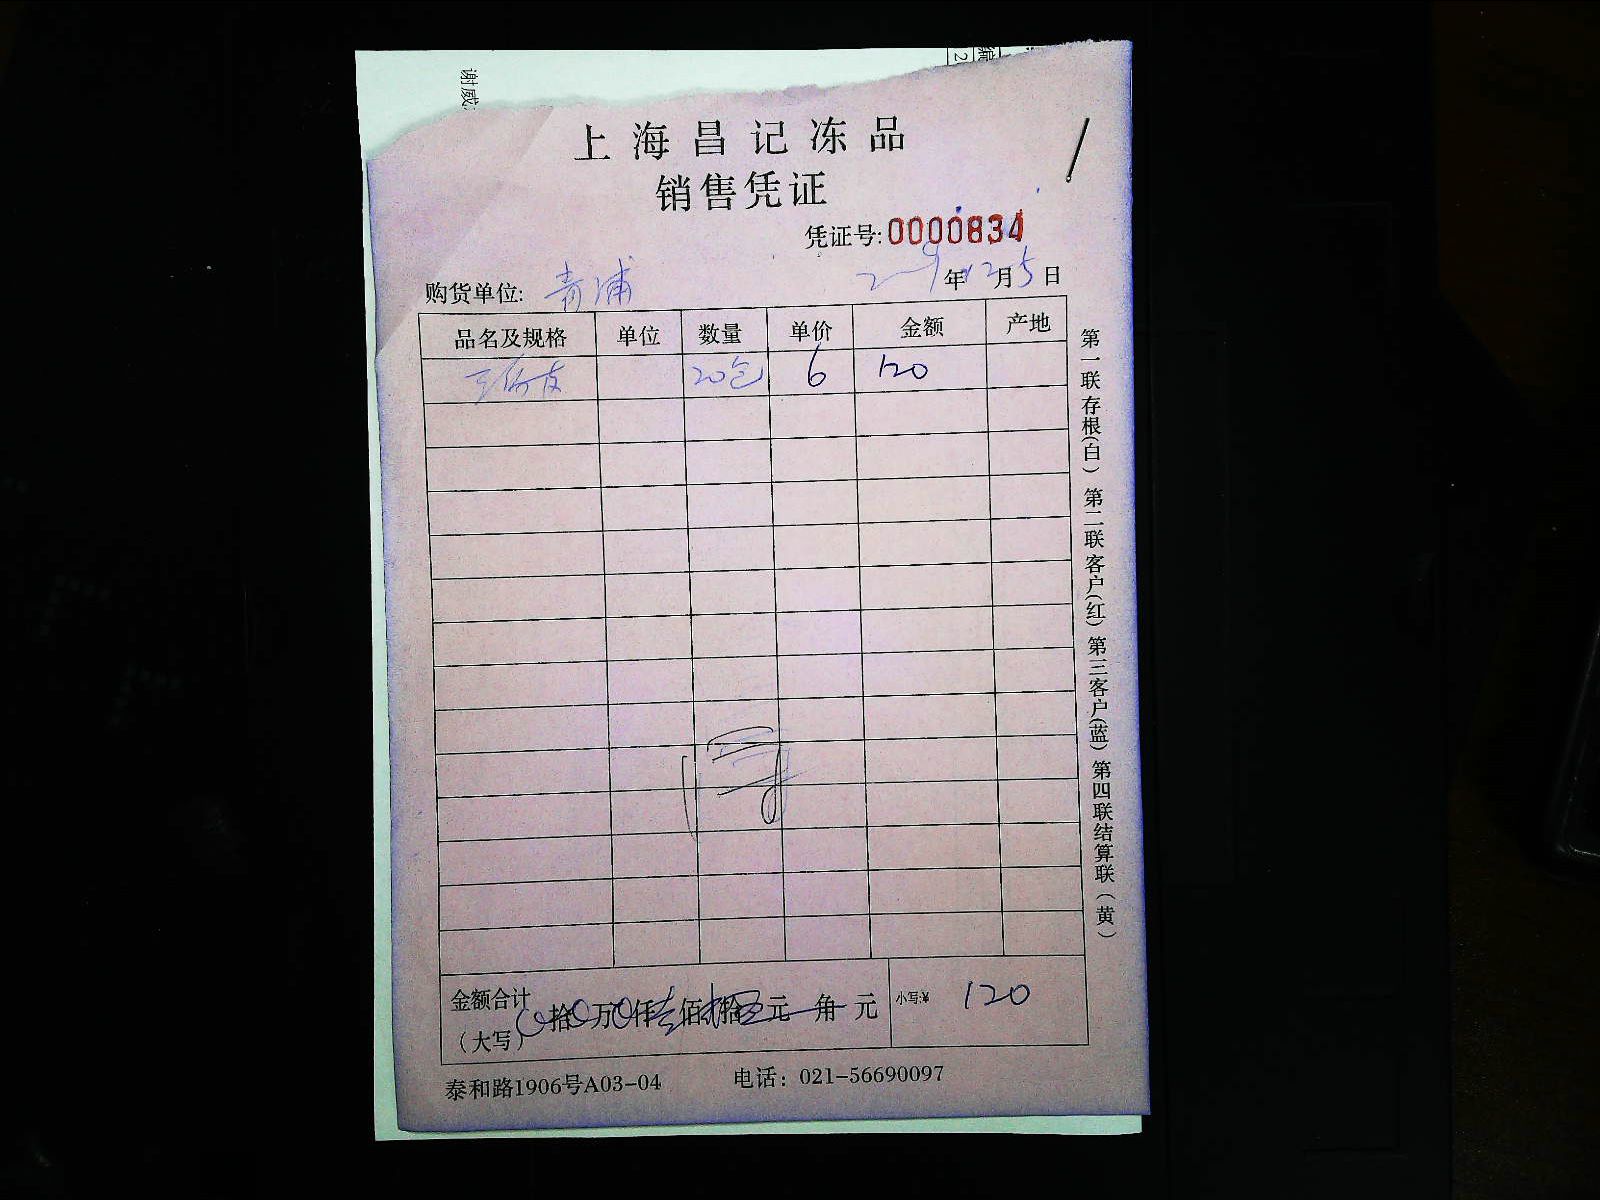 谢威
编
2
上海昌记冻品
销售凭证
凭证号:0000834
购货单位: 青浦 年12月5日
品名及规格 单位 数量 单价 金额 产地
20包 6 120
金额合计 拾 万 仟 佰 拾 元 角 元 小写:¥ 120
（大写）
泰和路1906号A03-04 电话：021-56690097
第一联存根(白) 第二联客户(红) 第三客户(蓝) 第四联结算联(黄)